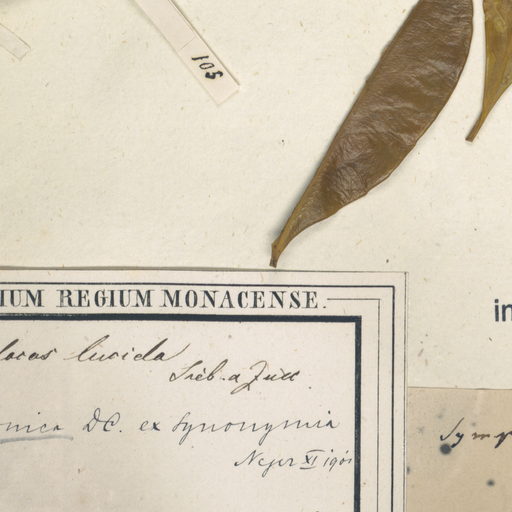 105
IUM REGIUM MONACENSE.
locos lucida
Sieb. a Zucc.
onica DC. ex Synonymia
XI
in
Symp